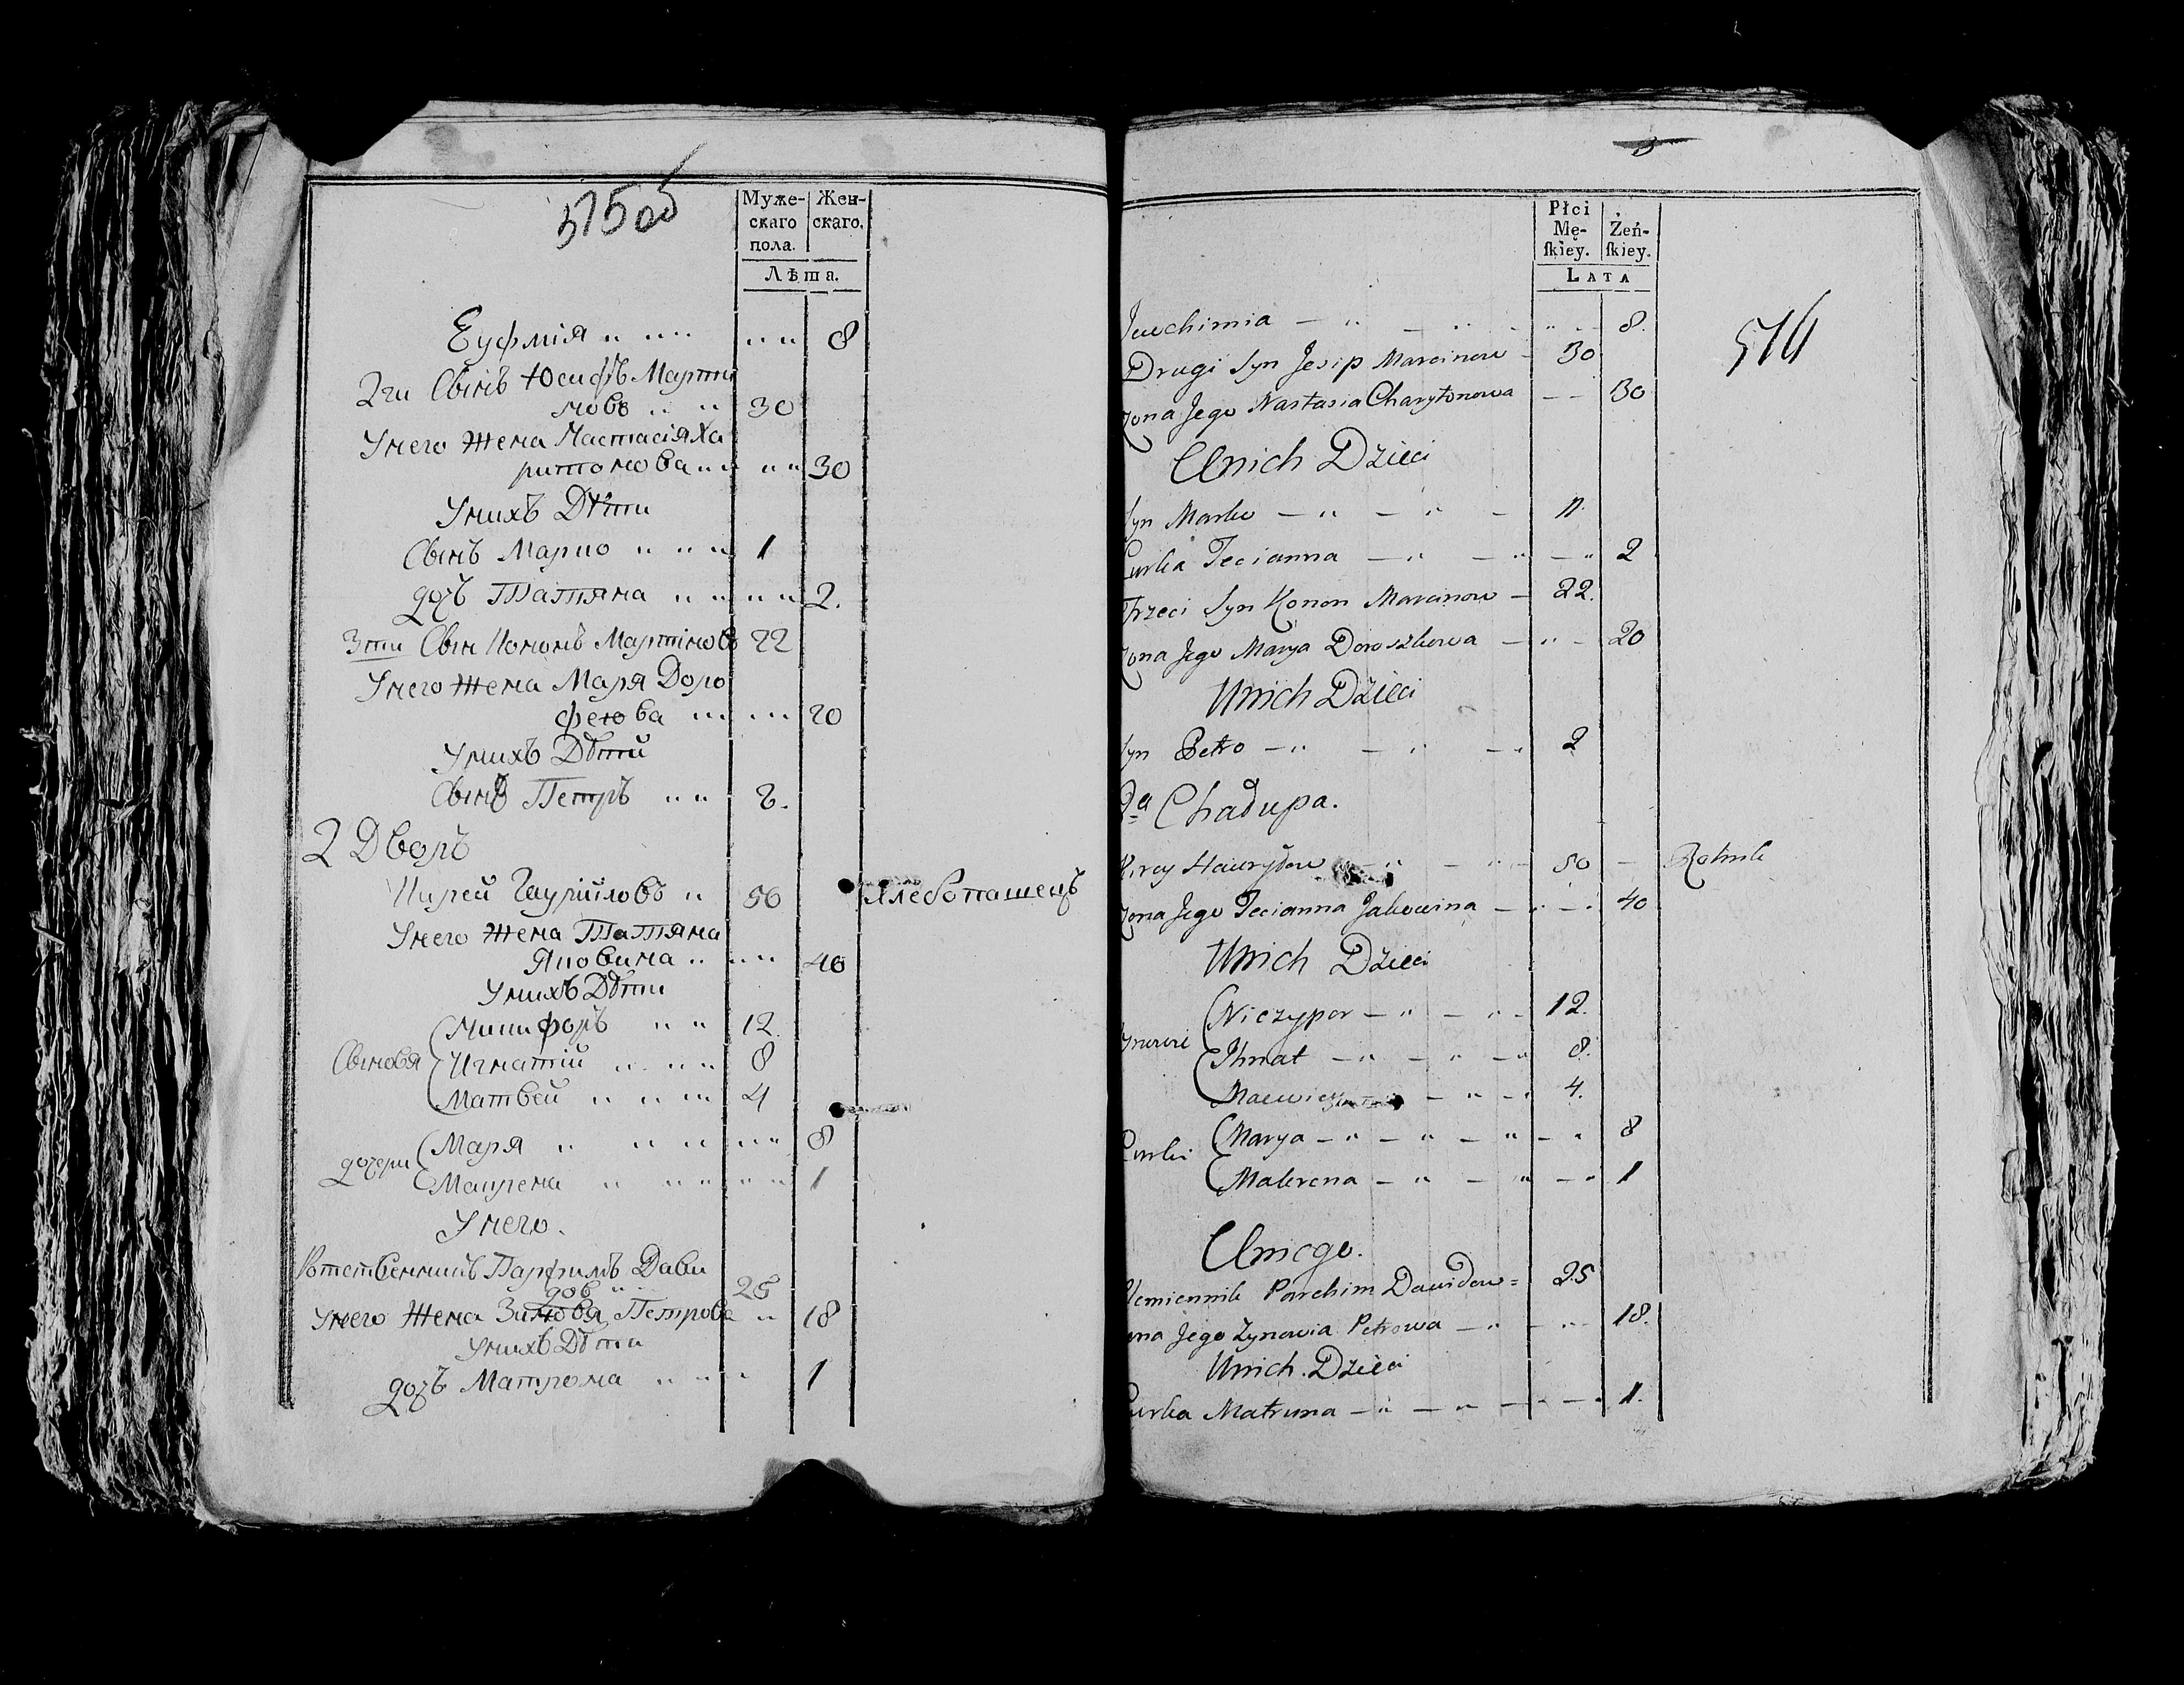 575 об
Муже-
скаго
пола.
Жен-
скаго.
Лѣта.
Еуфмія " " " " " 8
2ги Сынъ Юсифъ Марти
новъ " " 30
Унего Жена Настасія Ха
ритонова " " " " 30
Унихъ Дѣти
Сынъ Марко " " " 1
дочъ Татяна " " " " 2.
3ти Сын Кононъ Мартіновъ 22
Унего Жена Маря Доро
феюва " " " 20
Унихъ Дѣти
Сынъ Петръ " " 2.
2 Дворъ
Кирей Гаурійловъ " 50 Хлебопашецъ
Унего Жена Татяна
Яковина " " " 40
Унихъ Дѣти
Сыновя
Никифоръ " " 12.
Игнатій " " " 8
Матвей " " " 4
дочери
Маря " " " " " 8
Макрена " " " " " 1
Унего.
Ротственникъ Парфимъ Дави
довъ " 25
Унего Жена Зиновя Петрова " 18
Унихъ Дѣти
дочъ Матрона " " " 1
Płci
Mę-
ſkiey.
Żeń-
ſkiey.
LATA
576
Jeuchimia — " — " — 8.
Drugi Syn Jesip Marcinow - 30
Żona Jego Nastasia Charytonowa — — 30
Unich Dzieci
Syn Marko — " — " — 1.
Curka Tecianna — " — " — " 2
Trzeci Syn Konon Marcinow — 22.
Żona Jego Marya Doroszkowa — " — 20
Unich Dzieci
Syn Petro — " — " — " 2
2a Chałupa.
Kirey Hauryłow — " — " — 50 — Rolnik
Żona Jego Tecianna Jakowina — " — 40
Unich Dzieci
Synowie
Niczypor — " — " — 12.
Ihnat — " — " — " 8.
Macwiey — " — " 4.
Curki
Marya — " — " — " — " 8
Makrena — " — " — " 1
Uniego.
Plemiennik Parchim Dawidow = 25
Żona Jego Zynowia Petrowa — " — " 18.
Unich Dzieci
Curka Matruna — " — " — " — 1.